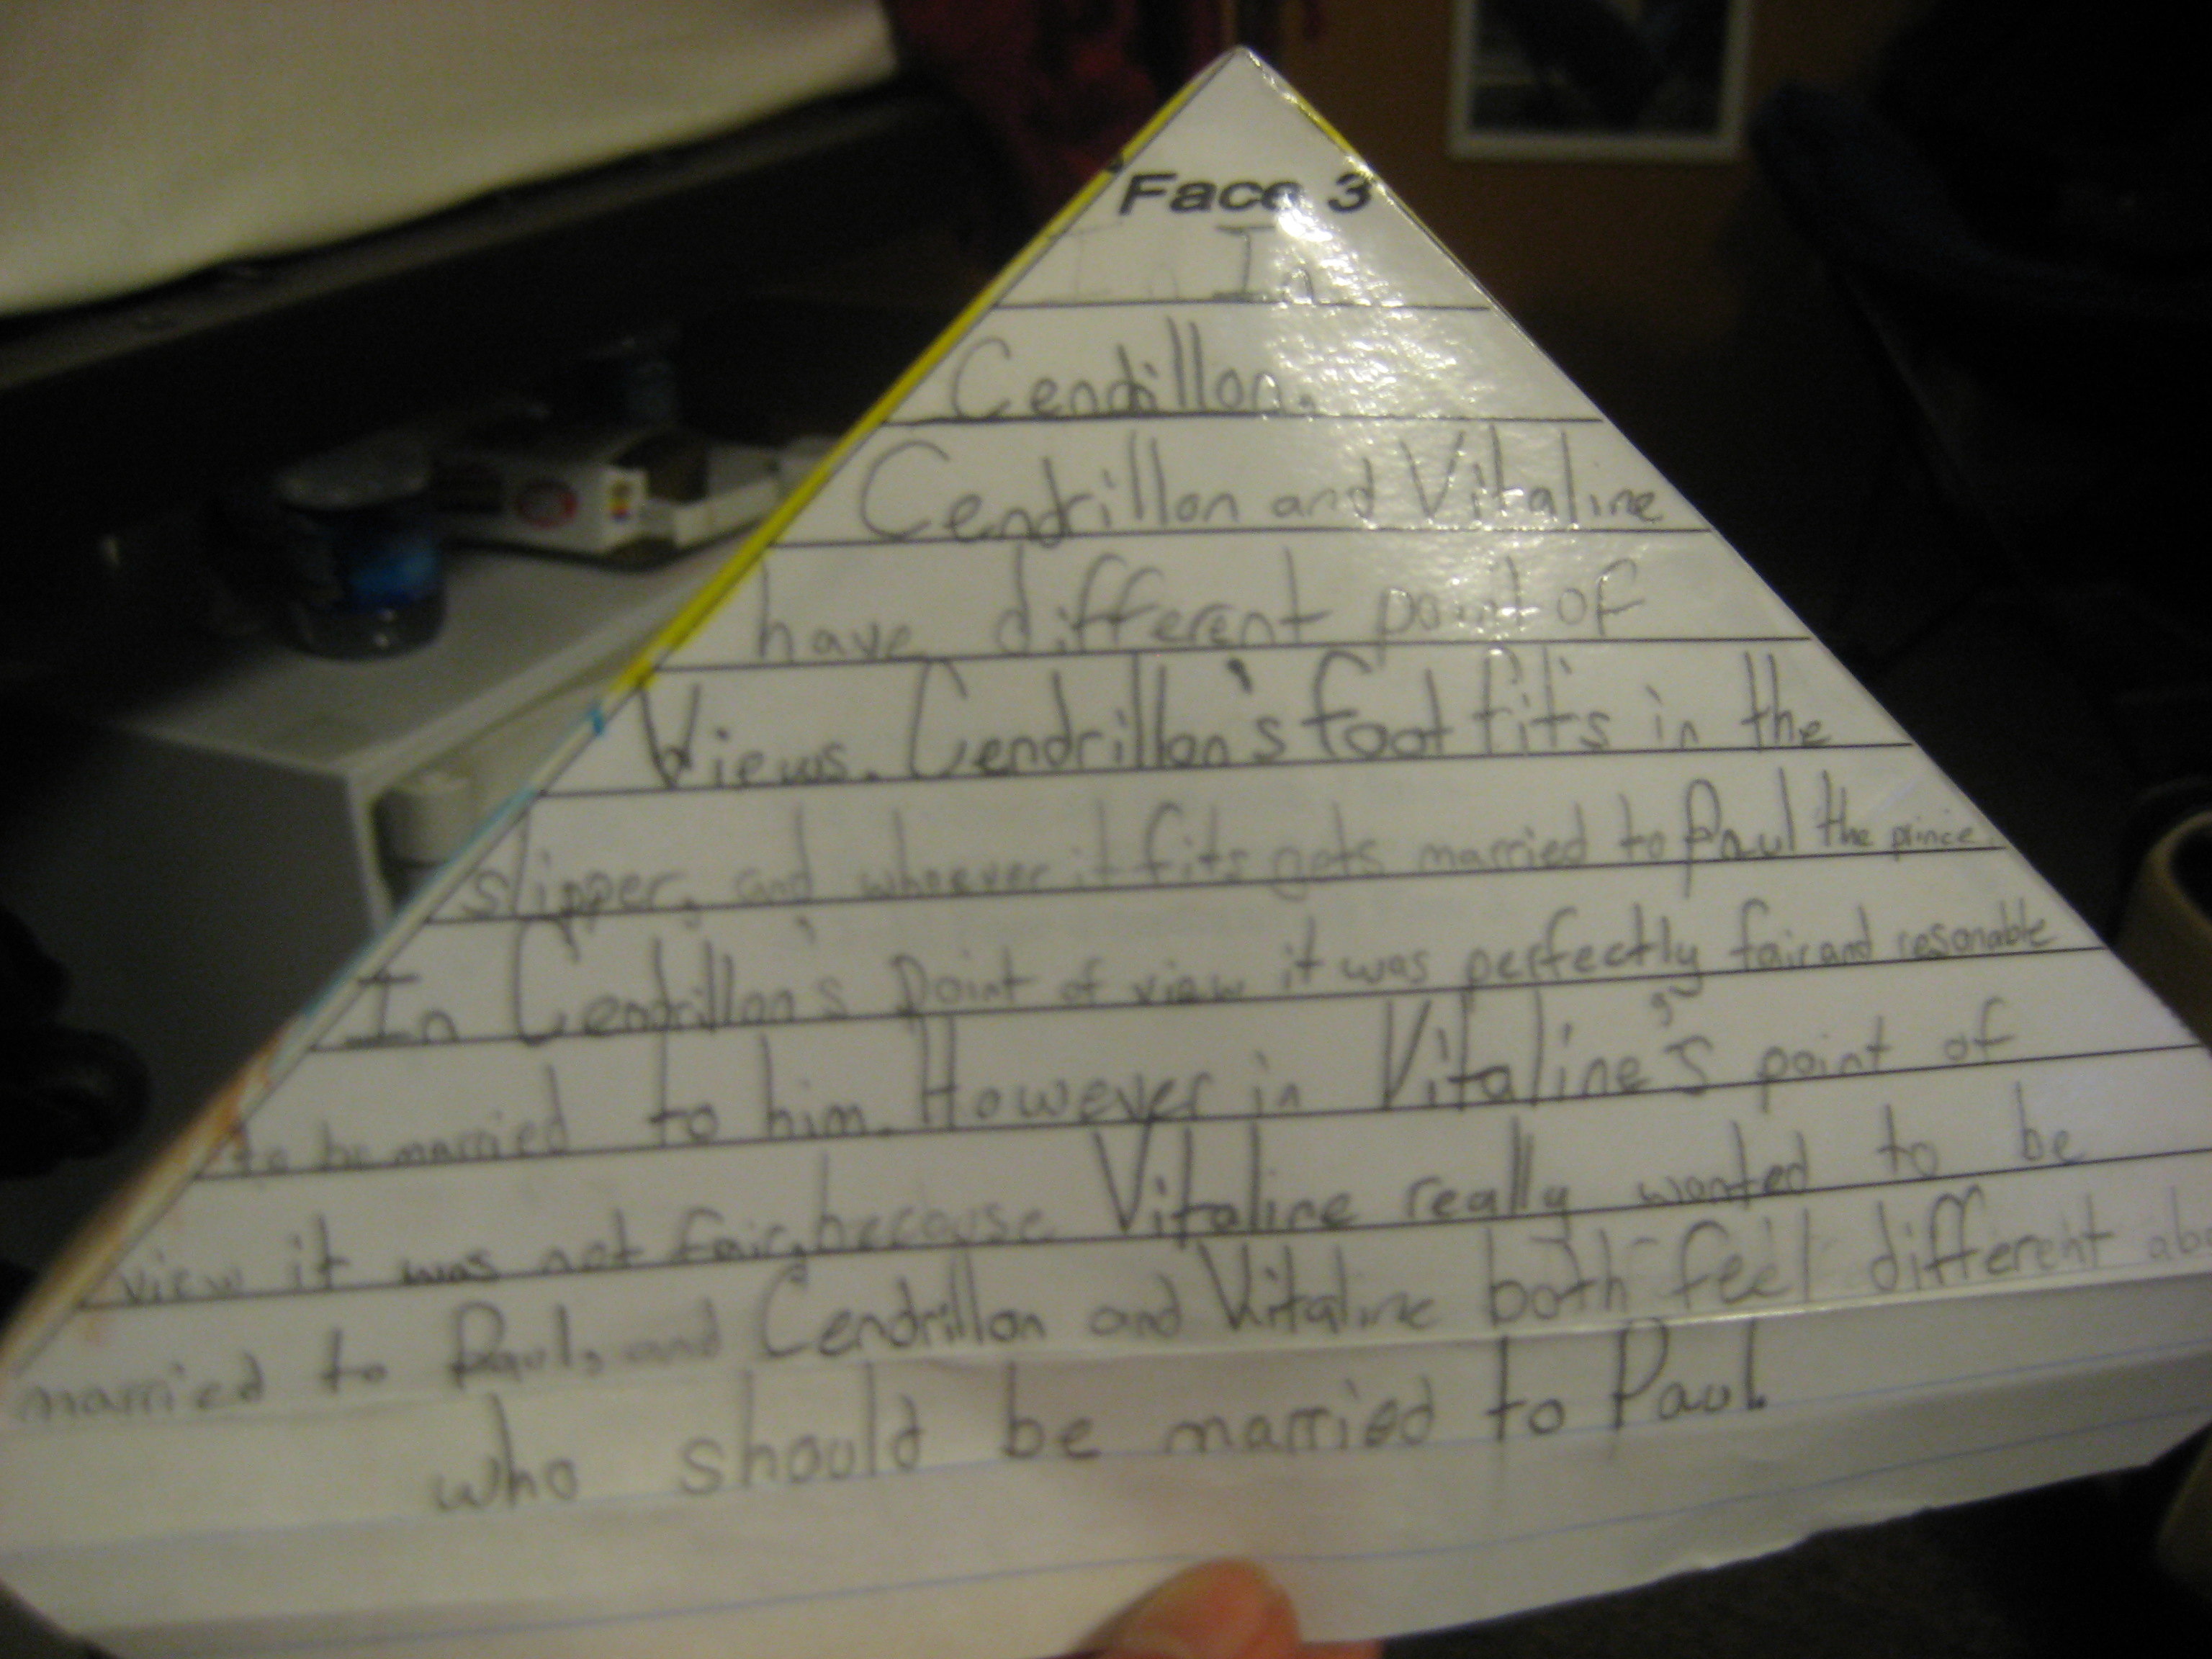 Face 3
In
Cendrillon,
Cendrillon and Vitaline
have different point of
Views. Cendrillon's foot fits in the
slipper, and whoever it fits gets married to Paul the prince.
In Cendrillon's point of view it was perfectly fair and resonable
to be married to him. However in Vitaline's point of
view it was not fair, because Vitaline really wanted to be
married to Paul, and Cendrillon and Vitaline both feel different abo
who should be married to Paul.